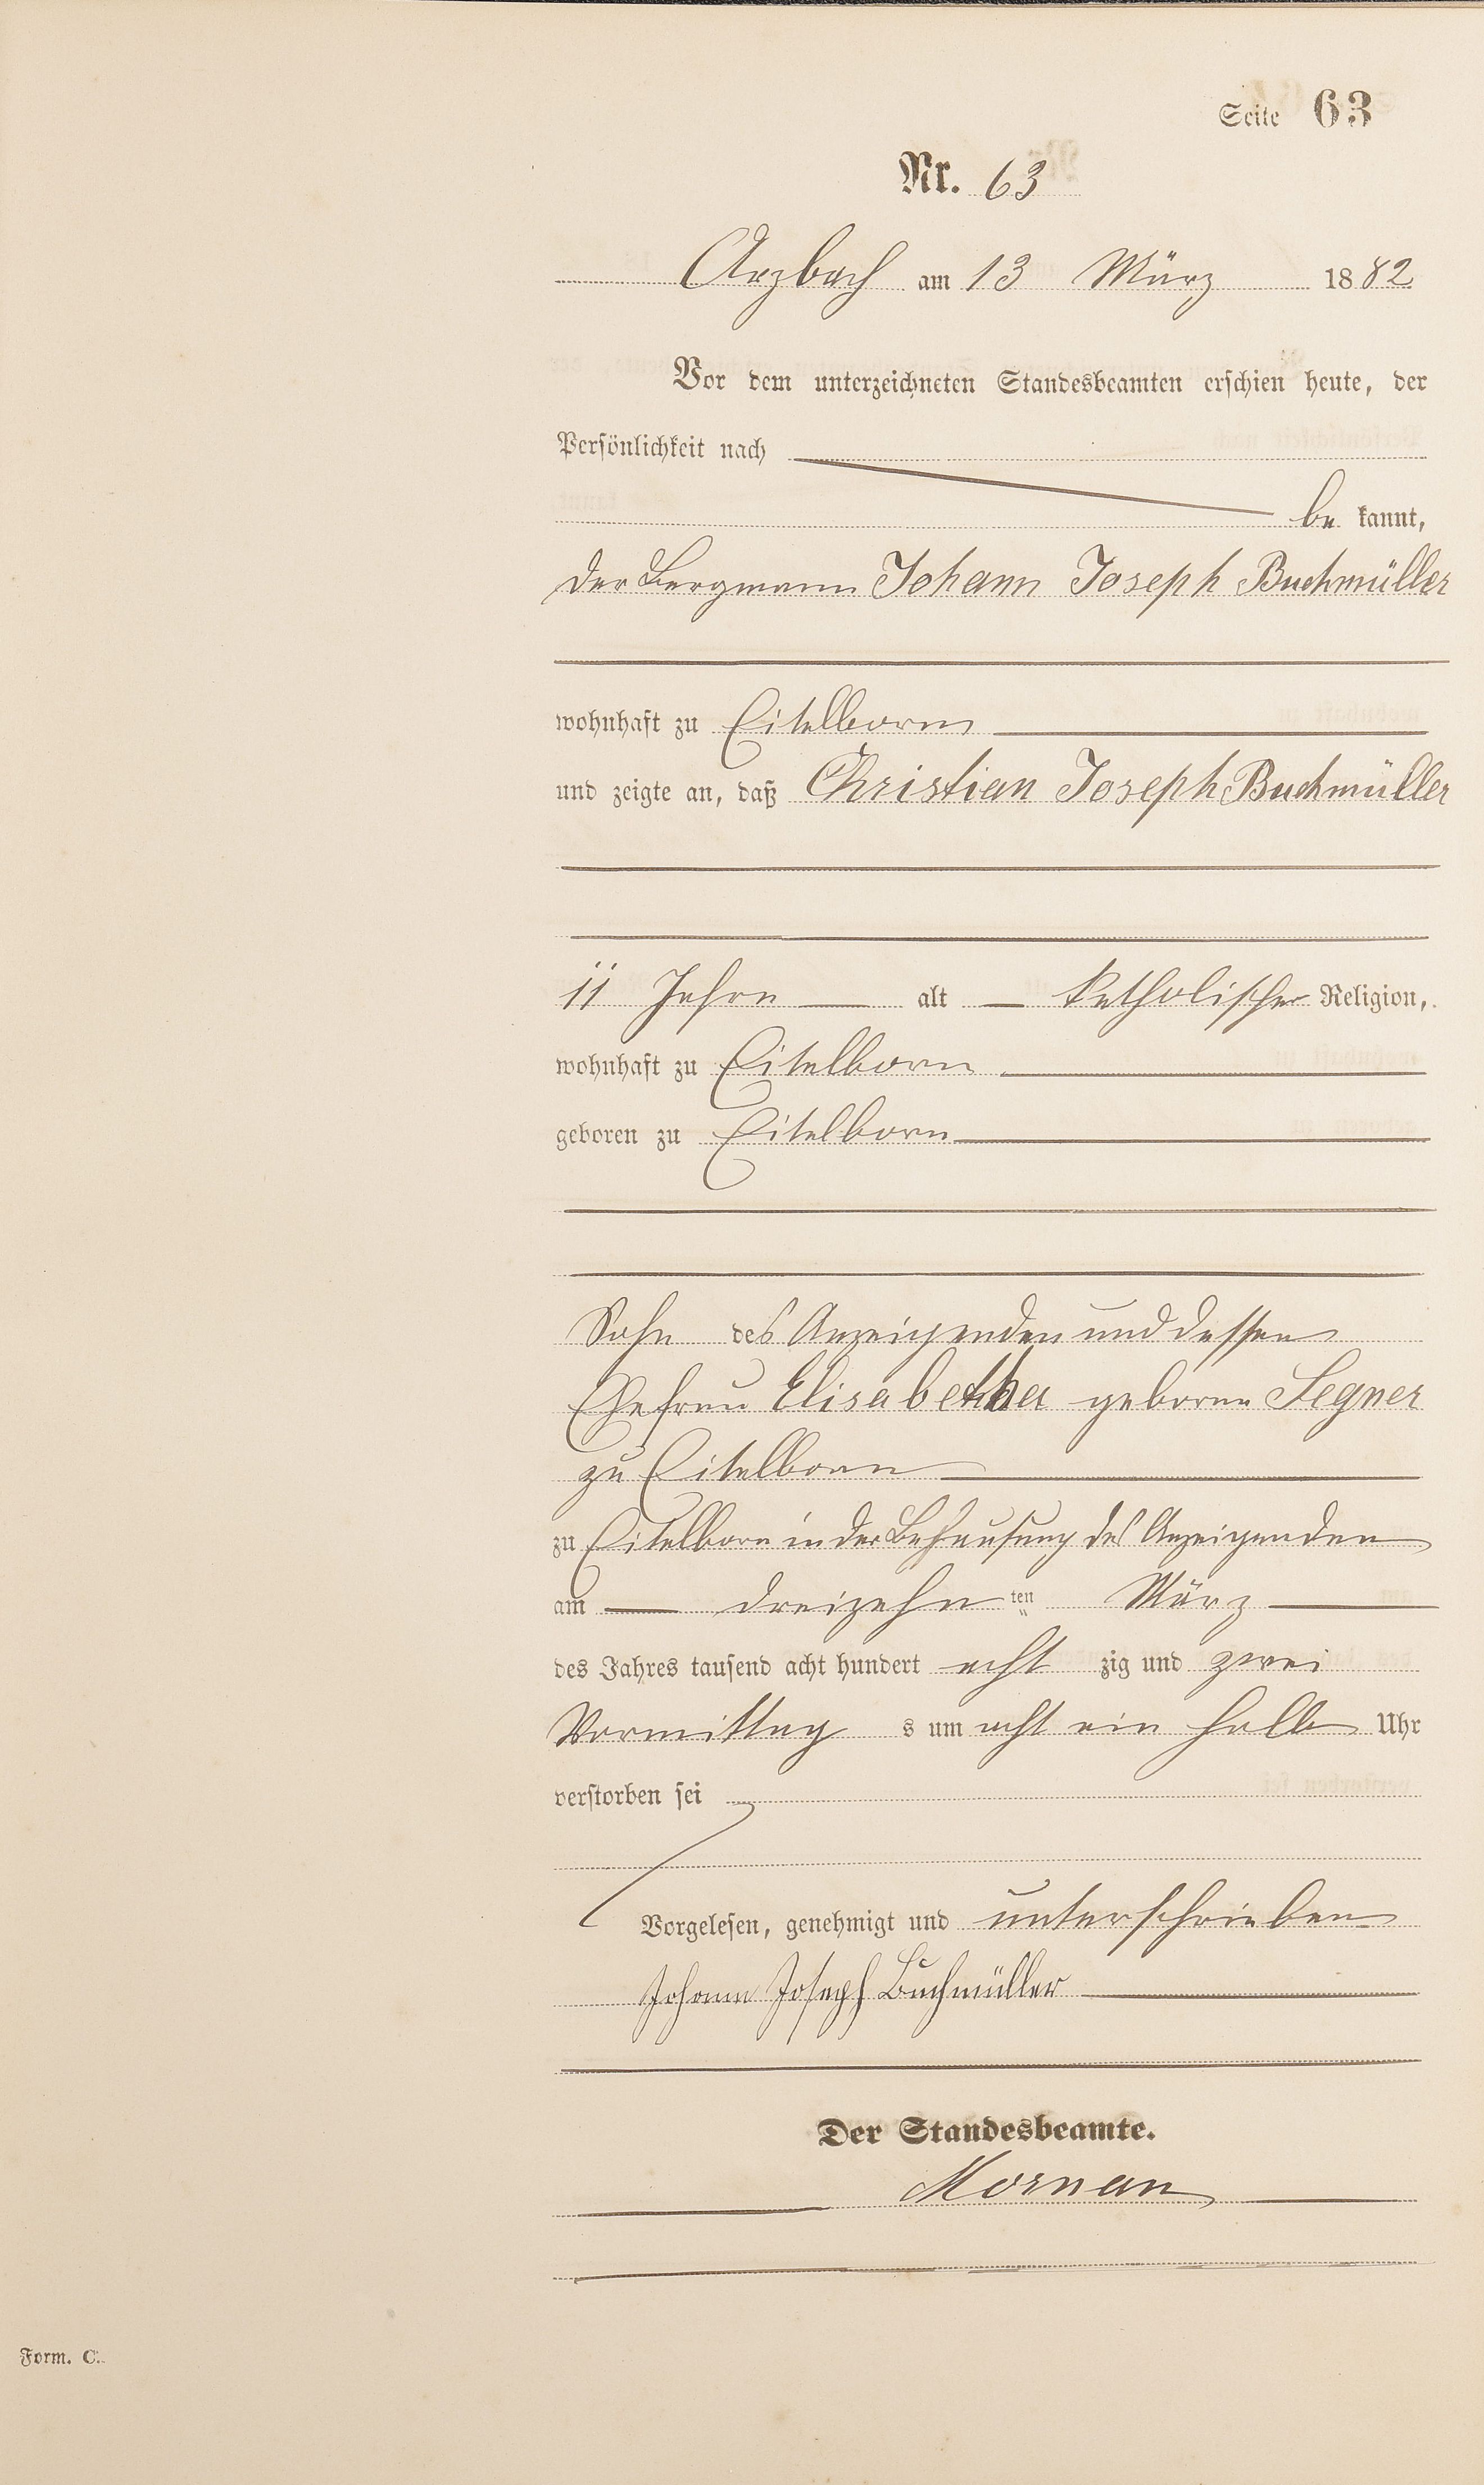 Seite 63
Nr. 63
Arzbach am 13 März 1882
Vor dem unterzeichneten Standesbeamten erschien heute, der
Persönlichkeit nach
be kannt,
der Bergmann Johann Joseph Buchmüller
wohnhaft zu Eitelborn
und zeigte an, daß Christian Joseph Buchmüller
11 Jahre alt katholischer Religion,
wohnhaft zu Eitelborn
geboren zu Eitelborn
Sohn des Anzeigenden und dessen
Ehefrau Elisabetha geborne Segner
zu Eitelborn
zu Eitelborn in der Behausung des Anzeigenden
am dreizehn ten März
des Jahres tausend acht hundert acht zig und zwei
Vormittag s um acht ein halb Uhr
verstorben sei
Vorgelesen, genehmigt und unterschrieben
Johann Joseph Buchmüller
Der Standesbeamte.
Form. C.